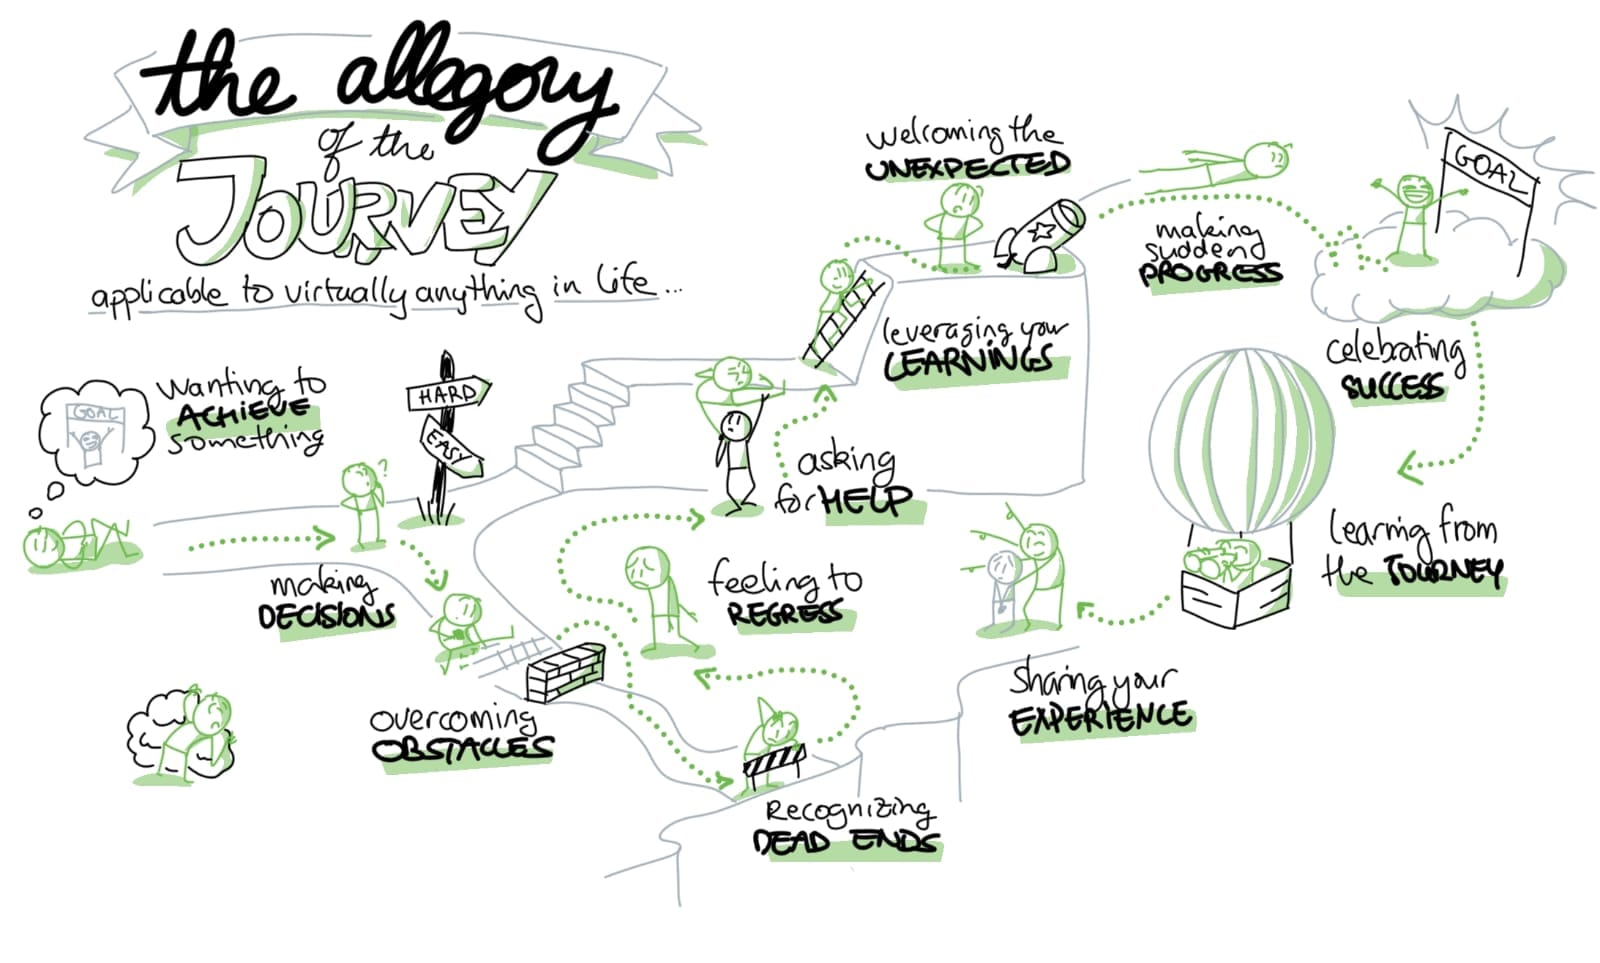 the allegory
of the
JOURNEY
applicable to virtually anything in life...
GOAL
wanting to
ACHIEVE
something
HARD
EASY
?
making
DECISIONS
OVERCOMING
OBSTACLES
Recognizing
DEAD ENDS
feeling to
REGRESS
asking
for HELP
leveraging your
LEARNINGS
welcoming the
UNEXPECTED
?
making
sudden
PROGRESS
GOAL
celebrating
SUCCESS
learning from
the JOURNEY
sharing your
EXPERIENCE